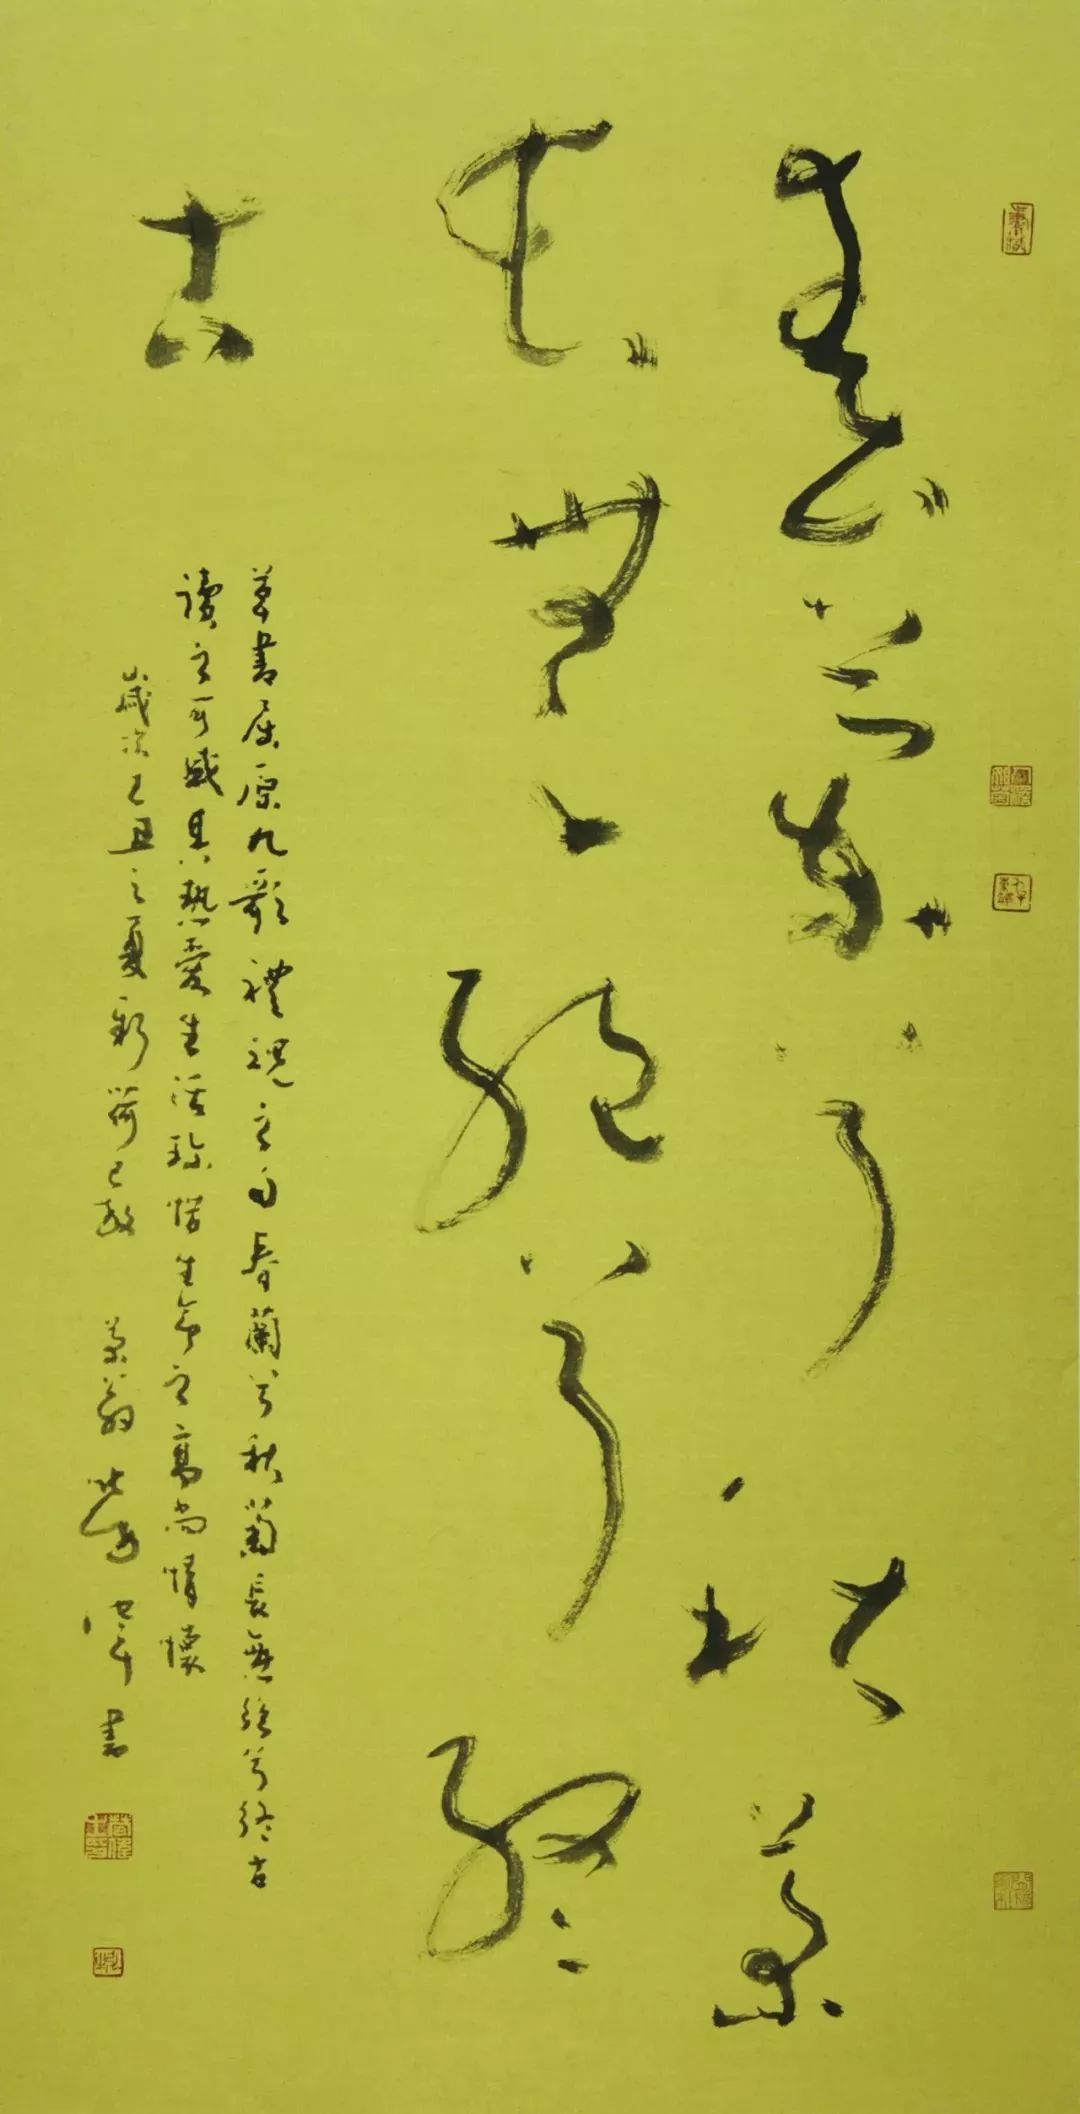 春蘭兮秋菊
長無絕兮終
古
草書屈原九歌禮魂之句春蘭兮秋菊長無絕兮終古
讀之可感其熱愛生活珍惜生命之高尚情懷
歲次己丑之夏新荷已放 翁 偉書